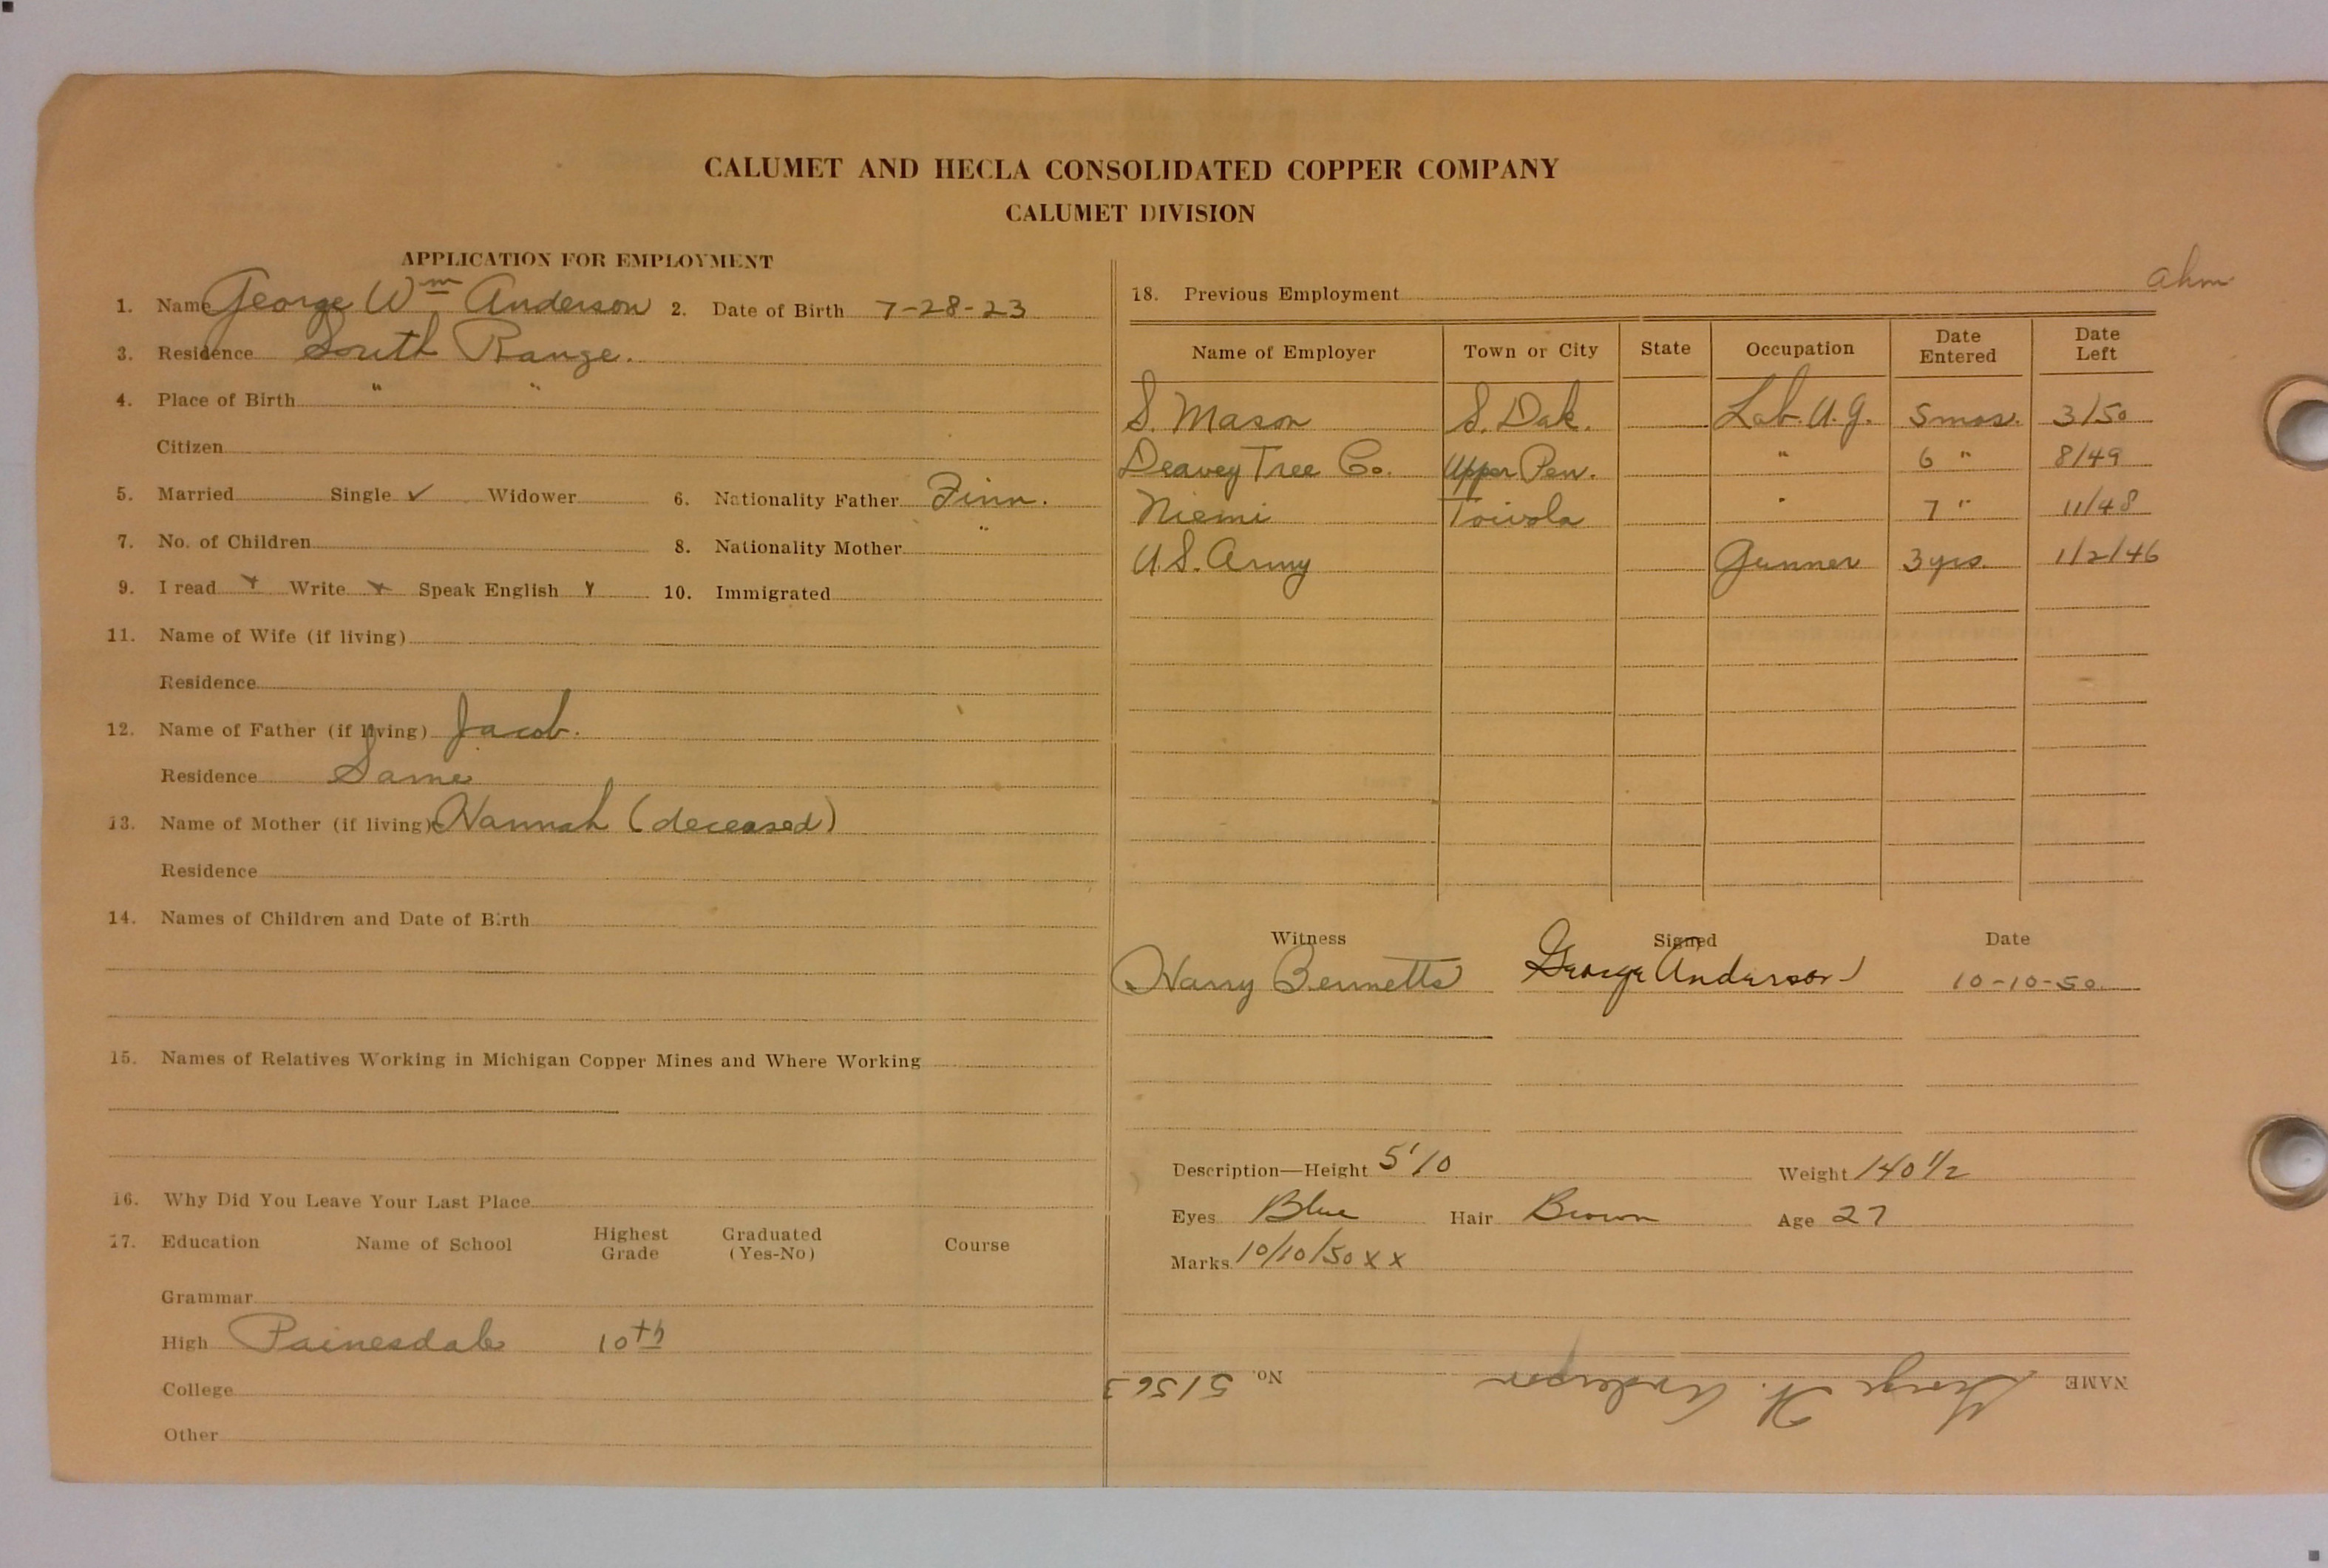 CALUMET AND HECLA CONSOLIDATED COPPER COMPANY
CALUMET DIVISION
APPLICATION FOR EMPLOYMENT
1. Name George Wm Anderson 2. Date of Birth 7-28-23
3. Residence South Range.
4. Place of Birth " "
Citizen
5. Married Single ✓ Widower 6. Nationality Father Finn.
7. No. of Children 8. Nationality Mother "
9. I read Y Write Y Speak English Y 10. Immigrated
11. Name of Wife (if living)
Residence
12. Name of Father (if living) Jacob.
Residence Same
13. Name of Mother (if living) Hannah (deceased)
Residence
14. Names of Children and Date of Birth
15. Names of Relatives Working in Michigan Copper Mines and Where Working
16. Why Did You Leave Your Last Place
17. Education Name of School Highest Grade Graduated (Yes-No) Course
Grammar
High Painesdale 10th
College
Other
ahm
18. Previous Employment
Name of Employer Town or City State Occupation Date Entered Date Left
S. Mason S. Dak. Lab. U.G. 5 mos. 3/50
Deavey Tree Co. Upper Pen. " 6 " 8/49
Niemi Toivola " 7 " 11/48
U.S. Army Gunner 3 yrs. 1/2/46
Witness Signed Date
Harry Bennetts George Anderson 10-10-50
Description—Height 5'10 Weight 140 1/2
Eyes Blue Hair Brown Age 27
Marks 10/10/50 x x
NAME George W. Anderson No. 51563